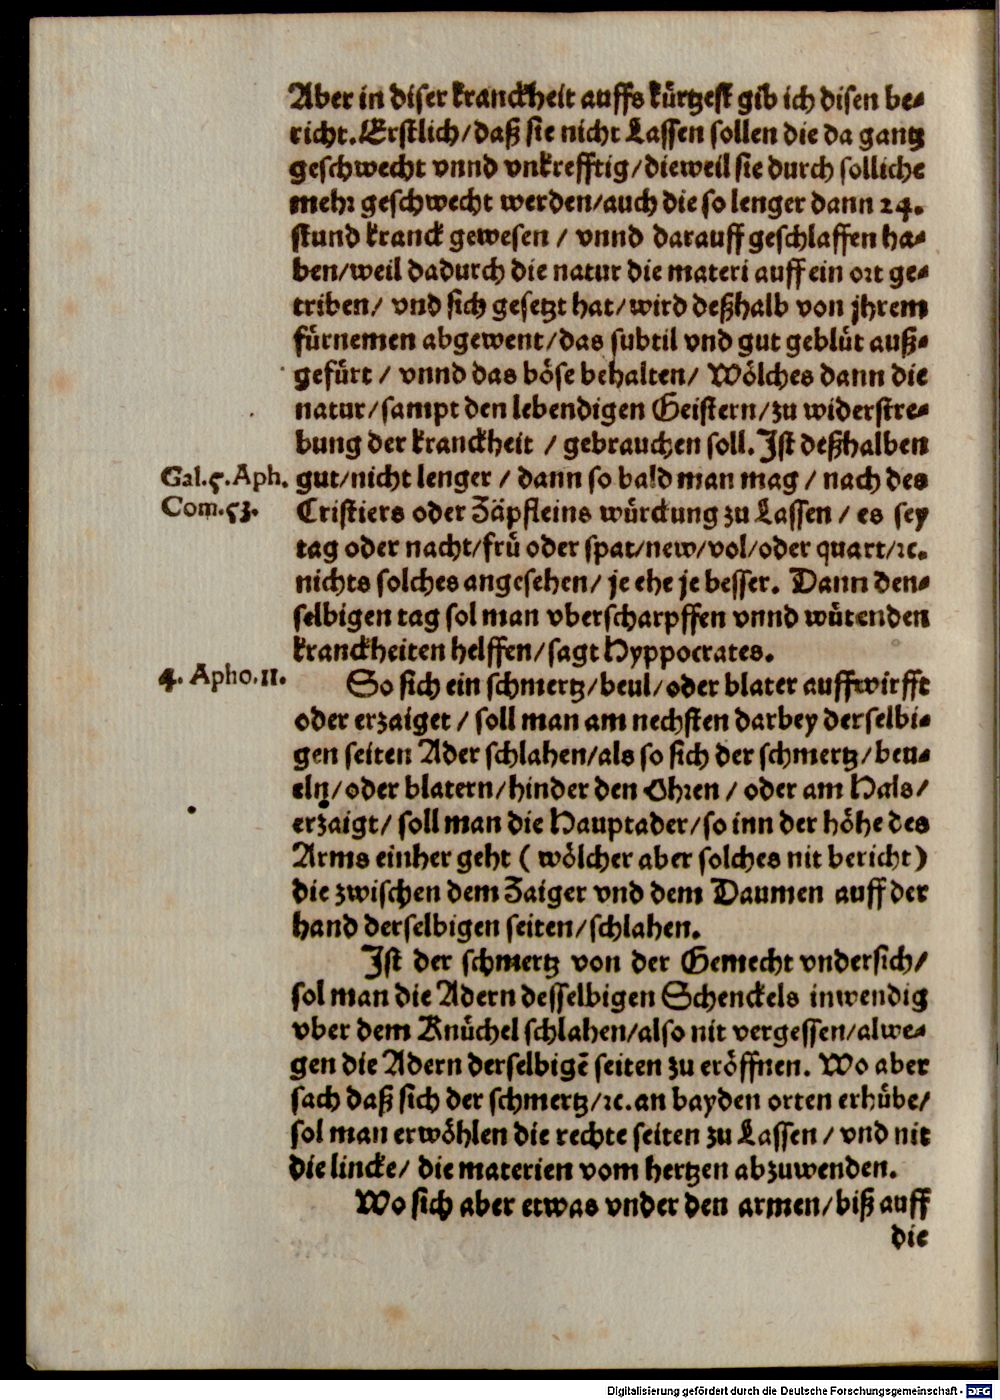 Aber in diser kranckheit auffs kürtzest gib ich disen be⸗
richt. Erstlich/daß sie nicht Lassen sollen die da gantz
geschwecht vnnd vnkrefftig/dieweil sie durch solliche
mehr geschwecht werden/auch die so lenger dann 24.
stund kranck gewesen / vnnd darauff geschlaffen ha⸗
ben/weil dadurch die natur die materi auff ein ort ge⸗
triben/ vnd sich gesetzt hat/wird deßhalb von jhrem
fürnemen abgewent/das subtil vnd gut geblüt auß⸗
gefürt / vnnd das böse behalten/ Wölches dann die
natur/sampt den lebendigen Geistern/zu widerstre⸗
bung der kranckheit / gebrauchen soll. Ist deßhalben
Gal.5.Aph. gut/nicht lenger / dann so bald man mag / nach des
Com.53. Cristiers oder Zäpfleins würckung zu Lassen / es sey
tag oder nacht/frü oder spat/new/vol/oder quart/ꝛc.
nichts solches angesehen/ je ehe je besser. Dann den⸗
selbigen tag sol man vberscharpffen vnnd wütenden
kranckheiten helffen/sagt Hyppocrates.
4. Apho.11. So sich ein schmertz/beul/oder blater auffwirfft
oder erzaiget / soll man am nechsten darbey derselbi⸗
gen seiten Ader schlahen/als so sich der schmertz/beu⸗
eln/oder blatern/hinder den Ohren / oder am Hals/
erzaigt/ soll man die Hauptader/so inn der höhe des
Arms einher geht ( wölcher aber solches nit bericht)
die zwischen dem Zaiger vnd dem Daumen auff der
hand derselbigen seiten/schlahen.
Ist der schmertz von der Gemecht vndersich/
sol man die Adern desselbigen Schenckels inwendig
vber dem Knüchel schlahen/also nit vergessen/alwe⸗
gen die Adern derselbigẽ seiten zu eröffnen. Wo aber
sach daß sich der schmertz/ꝛc.an bayden orten erhübe/
sol man erwöhlen die rechte seiten zu Lassen / vnd nit
die lincke/ die materien vom hertzen abzuwenden.
Wo sich aber etwas vnder den armen/biß auff
die
Digitalisierung gefördert durch die Deutsche Forschungsgemeinschaft - DFG